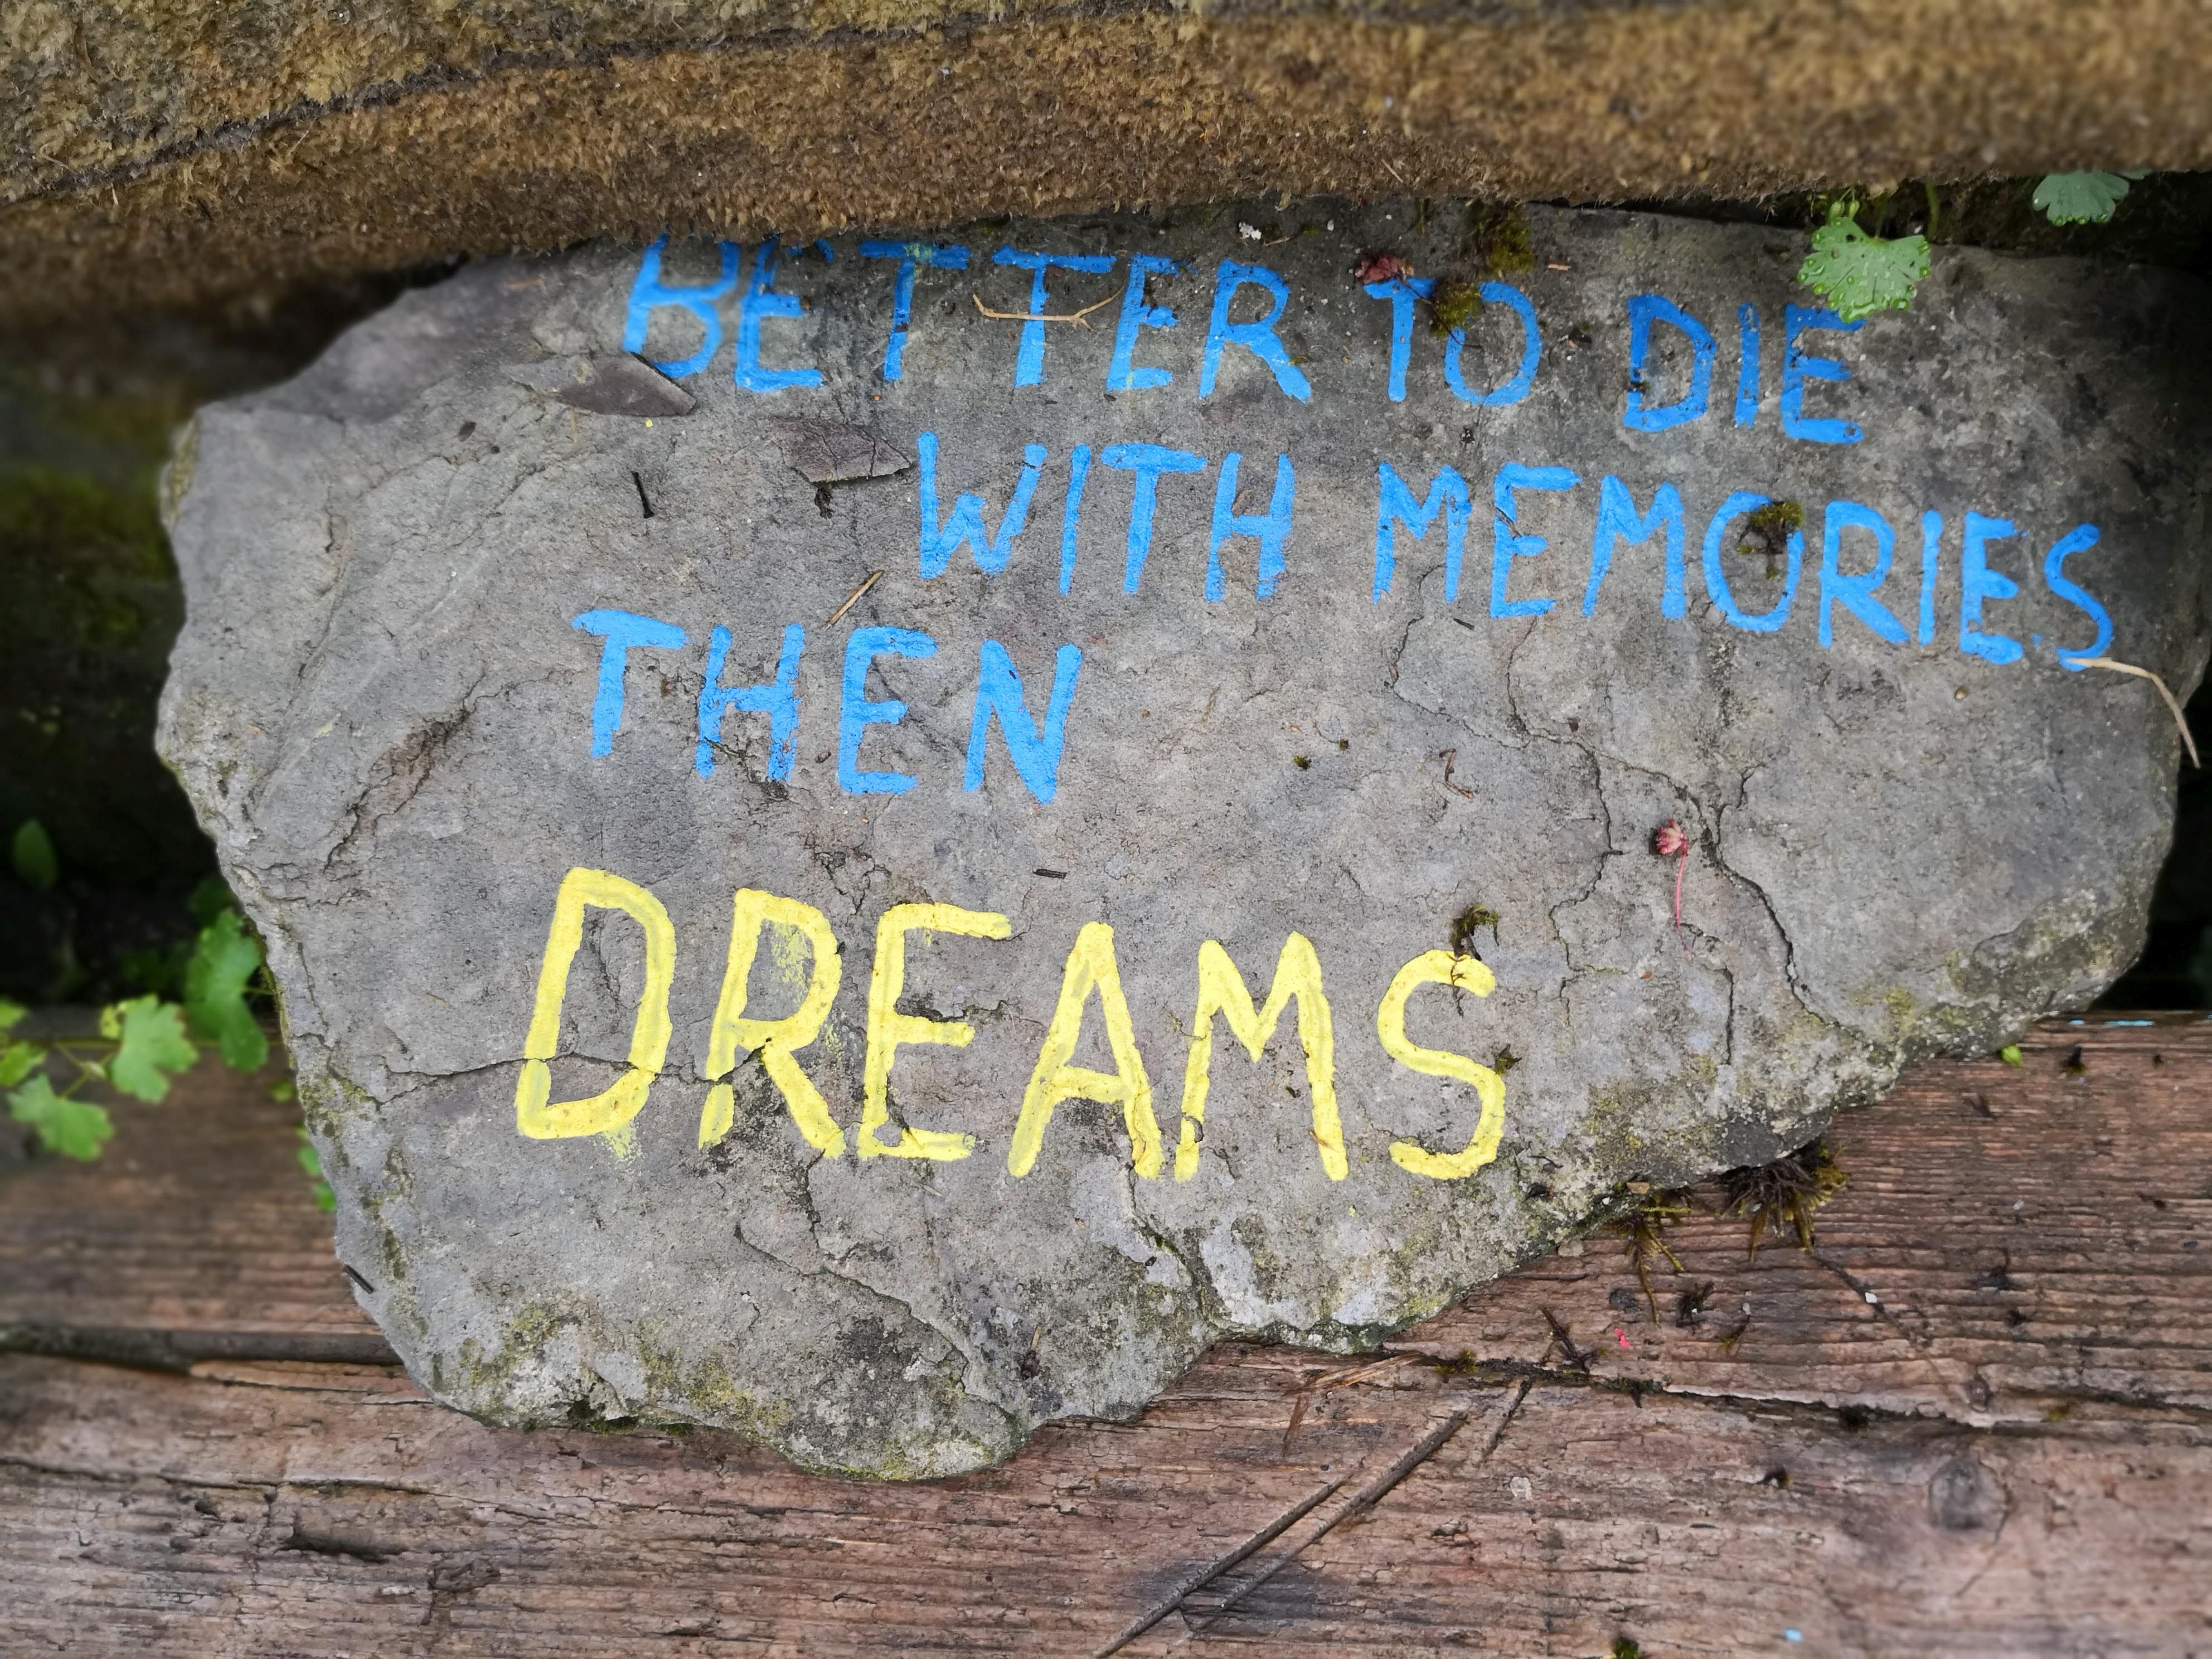 BETTER TO DIE
WITH MEMORIES
THEN
DREAMS